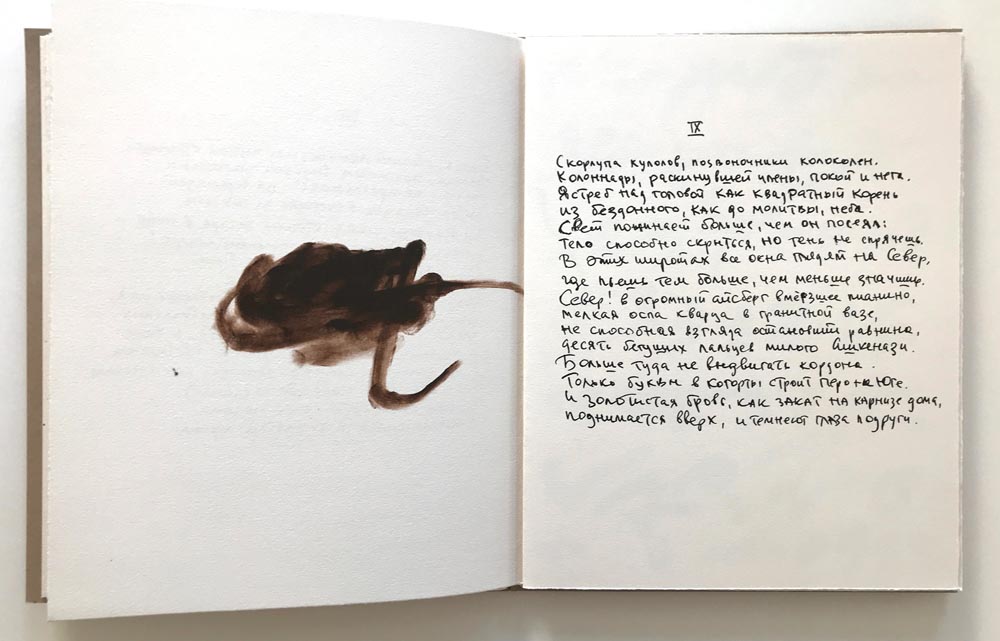 IX
Скорлупа куполов, позвоночники колоколен.
Колоннады, раскинувшей члены, покой и нега.
Ястреб над головой как квадратный корень
из бездонного, как до молитвы, неба.
Свет пожинает больше, чем он посеял:
тело способно скрыться, но тень не спрячешь.
В этих широтах все окна глядят на Север,
где пьешь тем больше, чем меньше значишь.
Север! в огромный айсберг вмёрзшее пианино,
мелкая оспа кварца в гранитной вазе,
не способная взгляда остановить равнина,
десять бегущих пальцев милого Ашкенази.
Больше туда не выдвигать кордона.
Только буквы в когорты строит перо на Юге.
И золотистая бровь, как закат на карнизе дома,
поднимается вверх, и темнеют глаза подруги.